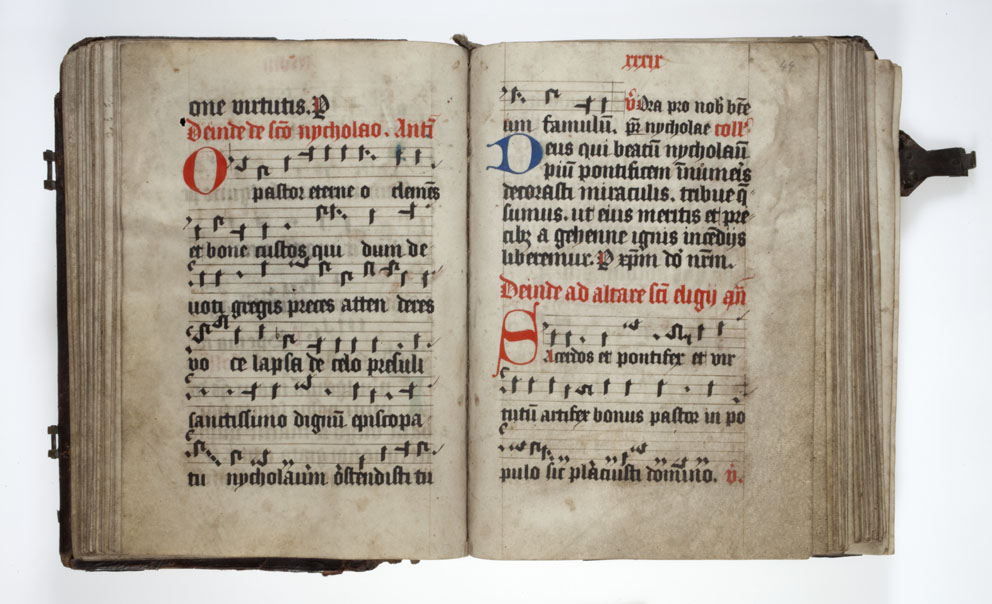 one virtutis. P
Deinde de sc̄o nycholao. Antī
O pastor eterne o clemēs
et bone custos qui dum de
uoti gregis preces atten deres
vo ce lapsa de celo presuli
sanctissimo dignū episcopa
tu nycholaum ostendisti tu
xxxix
44
v̊ Ora pro nob̄ bēe
um famulū. pr̄ nycholae coll'
Deus qui beatū nycholaū
piū pontificem īnumeis
decorasti miraculis. tribue q̄
sumus. ut eius meritis et pre
cibꝫ a gehenne ignis incēdijs
liberemur. P xp̄m dō nr̄m.
Deinde ad altare sc̄i eligij
Sacerdos et pontifex et vir
tutū artifex bonus pastor in po
pulo sic placuisti domino. v̊.